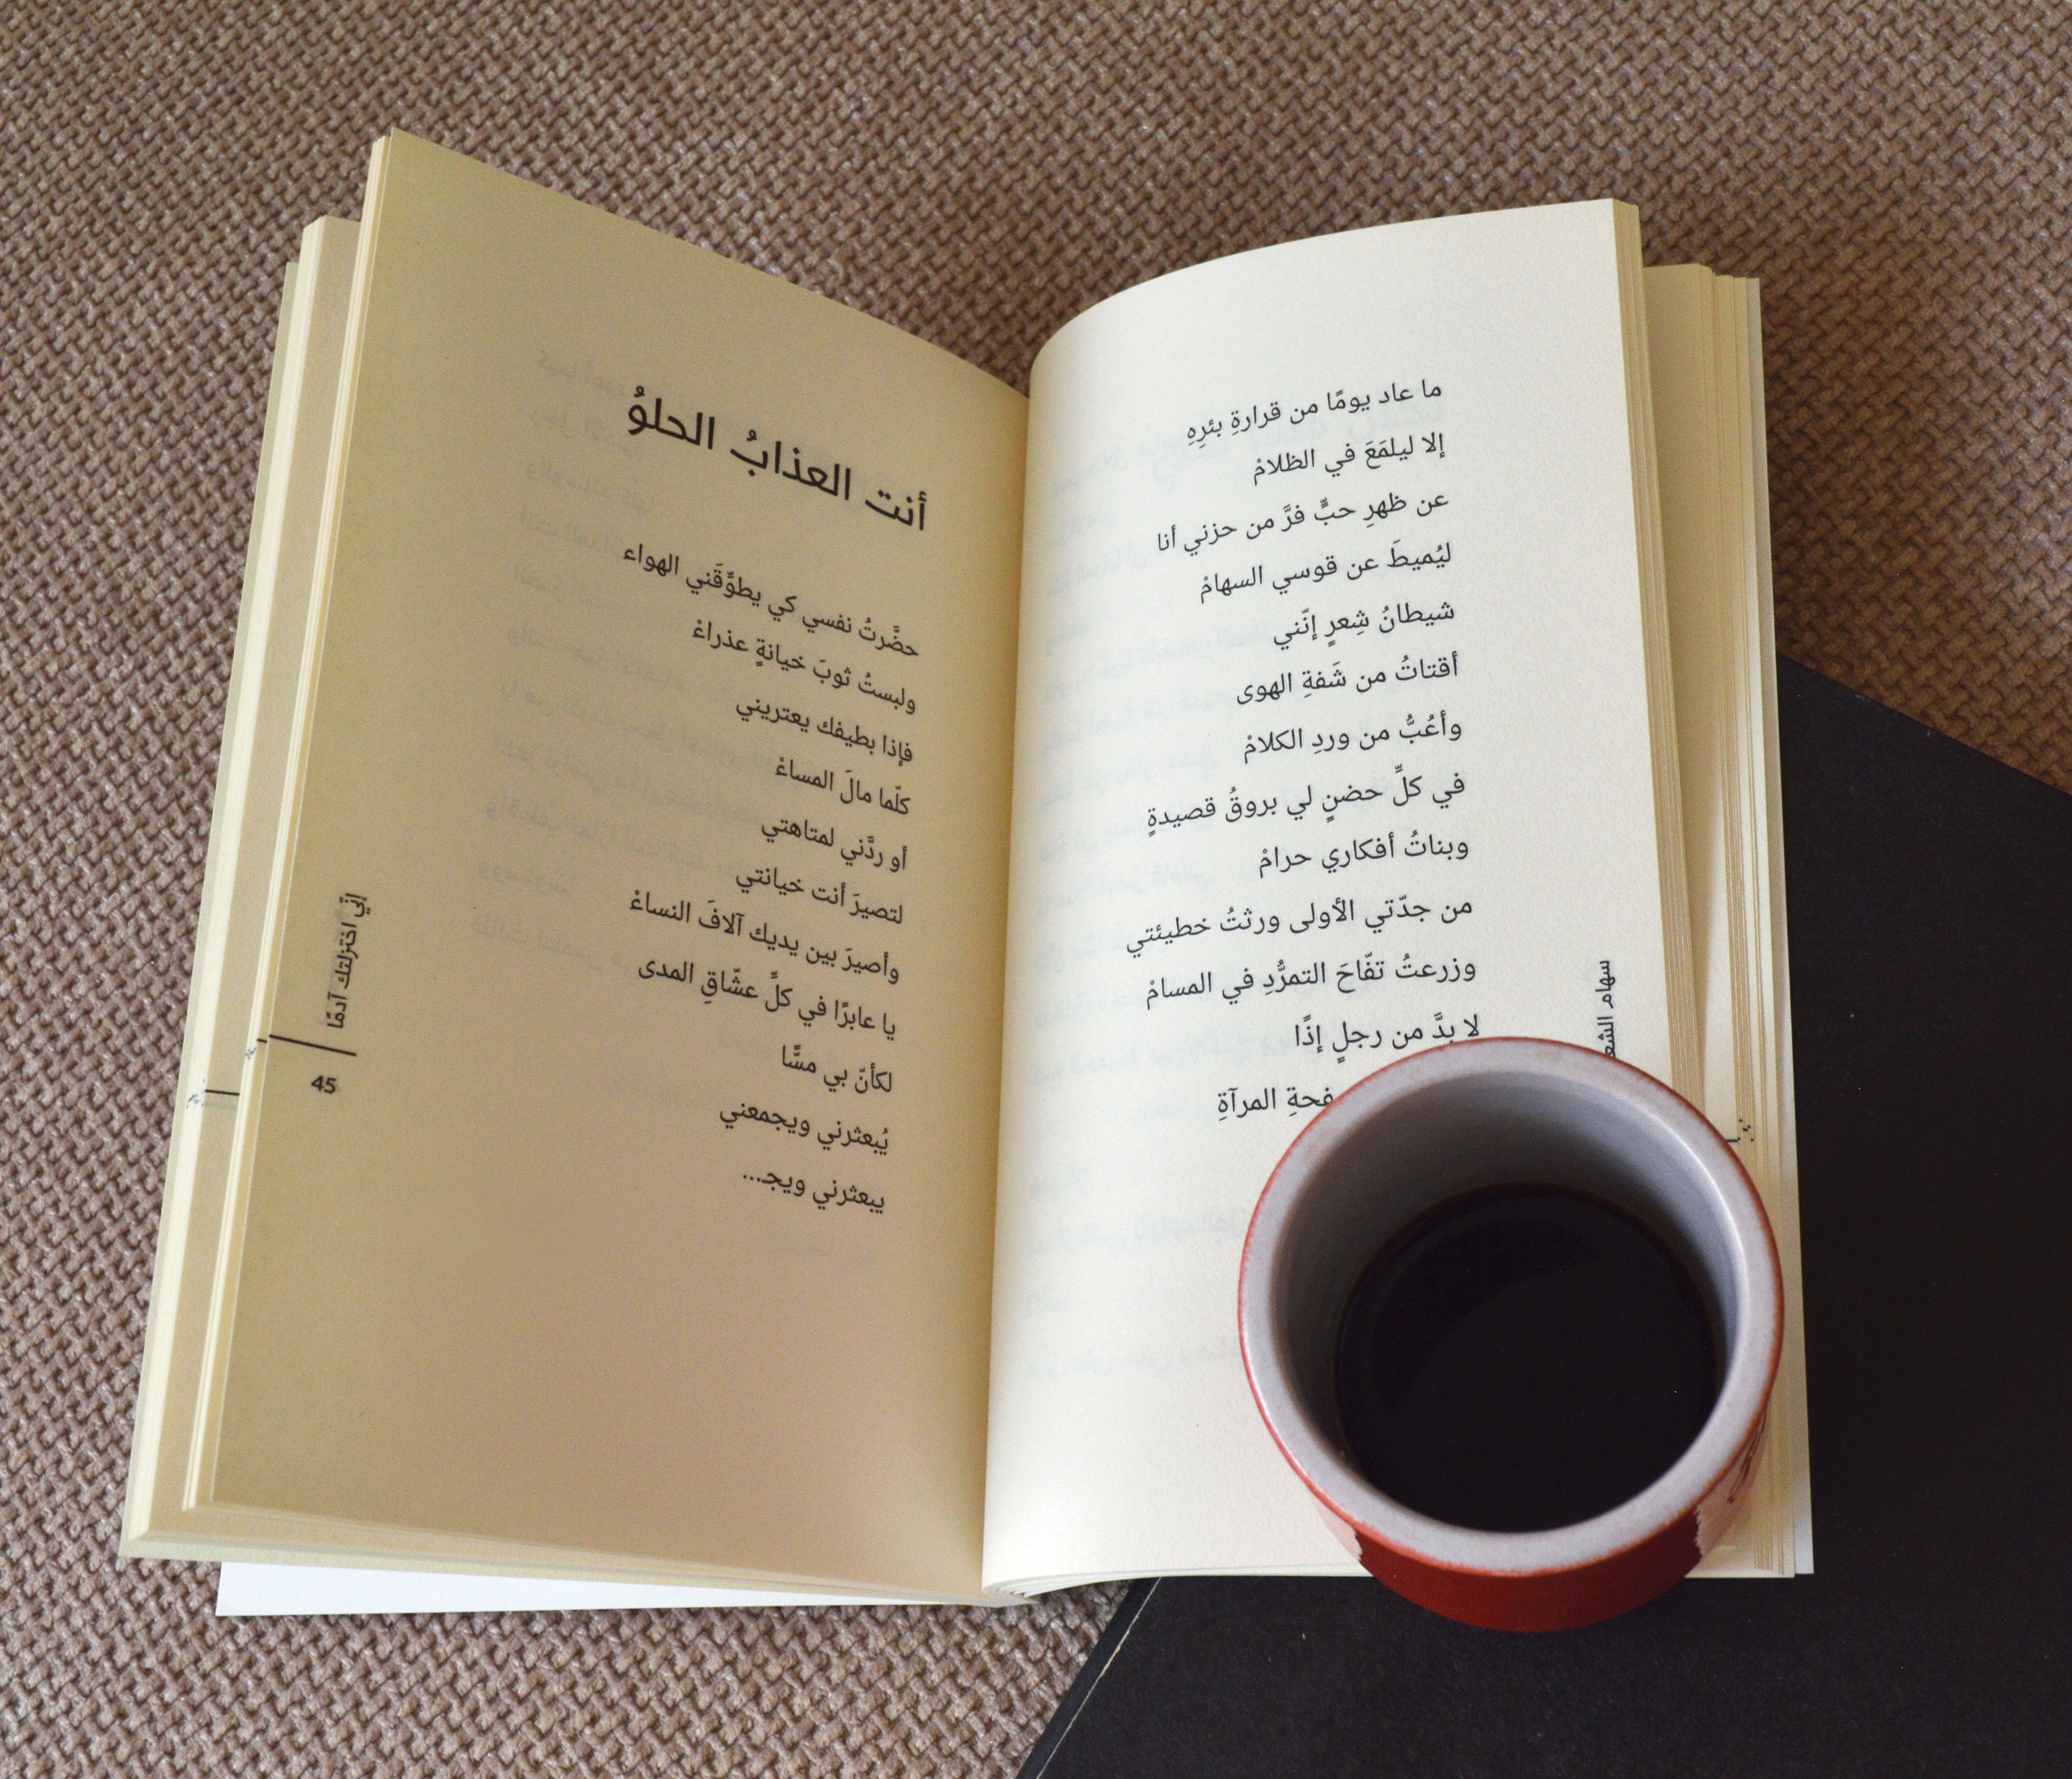 ما عاد يومًا من قرارةِ بئرِهِ
إلا ليلمَعَ في الظلامْ
عن ظهرِ حبٍّ فرَّ من حزني أنا
ليُميطَ عن قوسي السهامْ
شيطانُ شِعرٍ إنّني
أقتاتُ من شَفةِ الهوى
وأعُبُّ من وردِ الكلامْ
في كلِّ حضنٍ لي بروقُ قصيدةٍ
وبناتُ أفكاري حرامْ
من جدّتي الأولى ورثتُ خطيئتي
وزرعتُ تفّاحَ التمرُّدِ في المسامْ
لا بدَّ من رجلٍ إذًا
المرآةِ
سهام
أنت العذابُ الحلوُ
حضَّرتُ نفسي كي يطوِّقَني الهواء
ولبستُ ثوبَ خيانةٍ عذراءْ
فإذا بطيفك يعتريني
كلّما مالَ المساءْ
أو ردَّني لمتاهتي
لتصيرَ أنت خيانتي
وأصيرَ بين يديك آلافَ النساءْ
يا عابرًا في كلِّ عشّاقِ المدى
لكأنّ بي مسًّا
يُبعثرني ويجمعني
يبعثرني ويجـ...
إنّي اختزلتك آدمًا
45